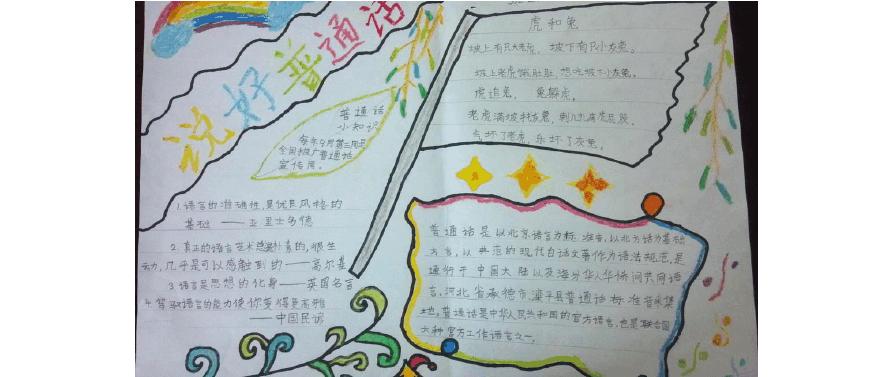 说好普通话
普通话
小知识
每年9月第三周是
全国推广普通话
宣传周。
1.语言的准确性,是优良风格的
基础 ——亚里士多德
2.真正的语言艺术总是朴素的,很生
动,几乎是可以感触到的——高尔基
3.语言是思想的化身——英国名言
4.驾驭语言的能力使你变得更高雅
——中国民谚
虎和兔
坡上有只大老虎,坡下有只小灰兔。
坡上老虎饿肚肚,想吃坡下小灰兔。
虎追兔,兔躲虎。
老虎满坡找灰兔,
气坏了老虎,乐坏了灰兔。
普通话是以北京语言为标准音,以北方话为基础
方言,以典范的现代白话文著作为语法规范,是
通行于中国大陆以及海外华人华侨间共同语
言,河北省承德市滦平县普通话标准音采集
地。普通话是中华人民共和国的官方语言,也是联合国
六种官方工作语言之一。